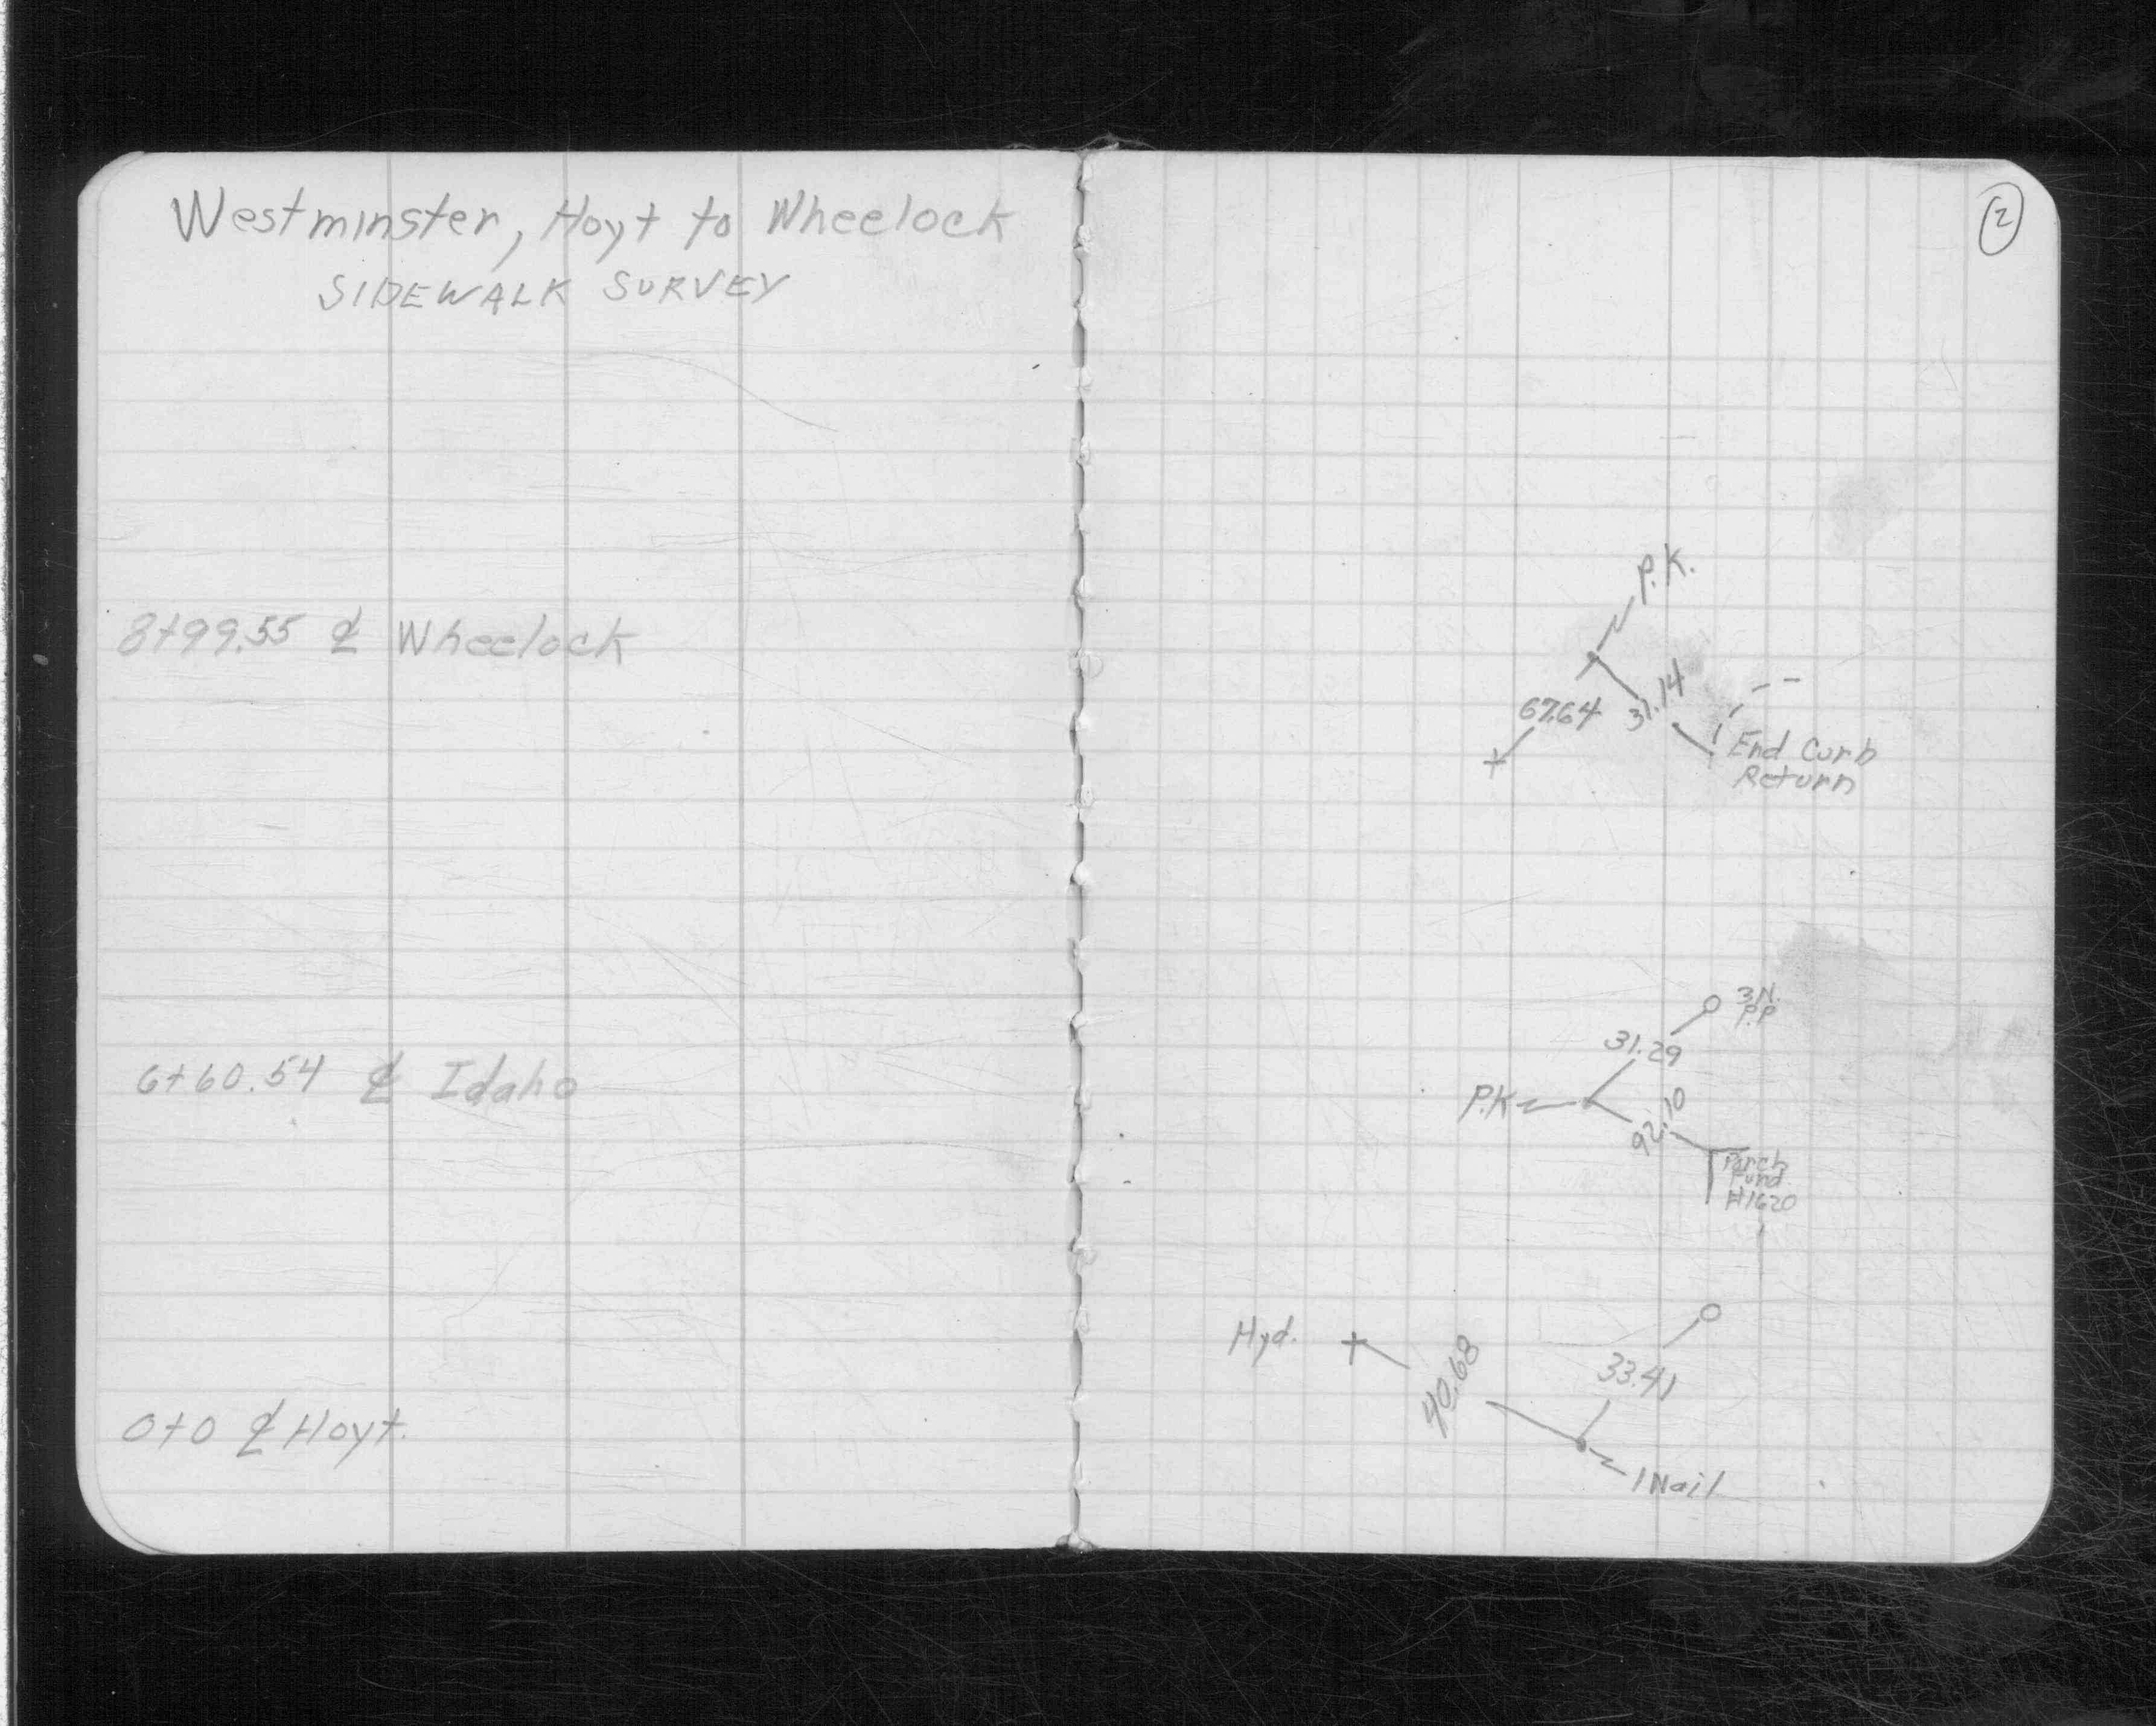 Westminster, Hoyt to Wheelock
SIDEWALK SURVEY
8+99.55 ℄ Wheelock
6+60.54 ℄ Idaho
0+0 ℄ Hoyt.
2
P.K.
67.64
31.14
End Curb
Return
3 N.
P.P
31.29
P.K
92.10
Porch
Fund
#1620
Hyd.
40.68
33.41
1 Nail